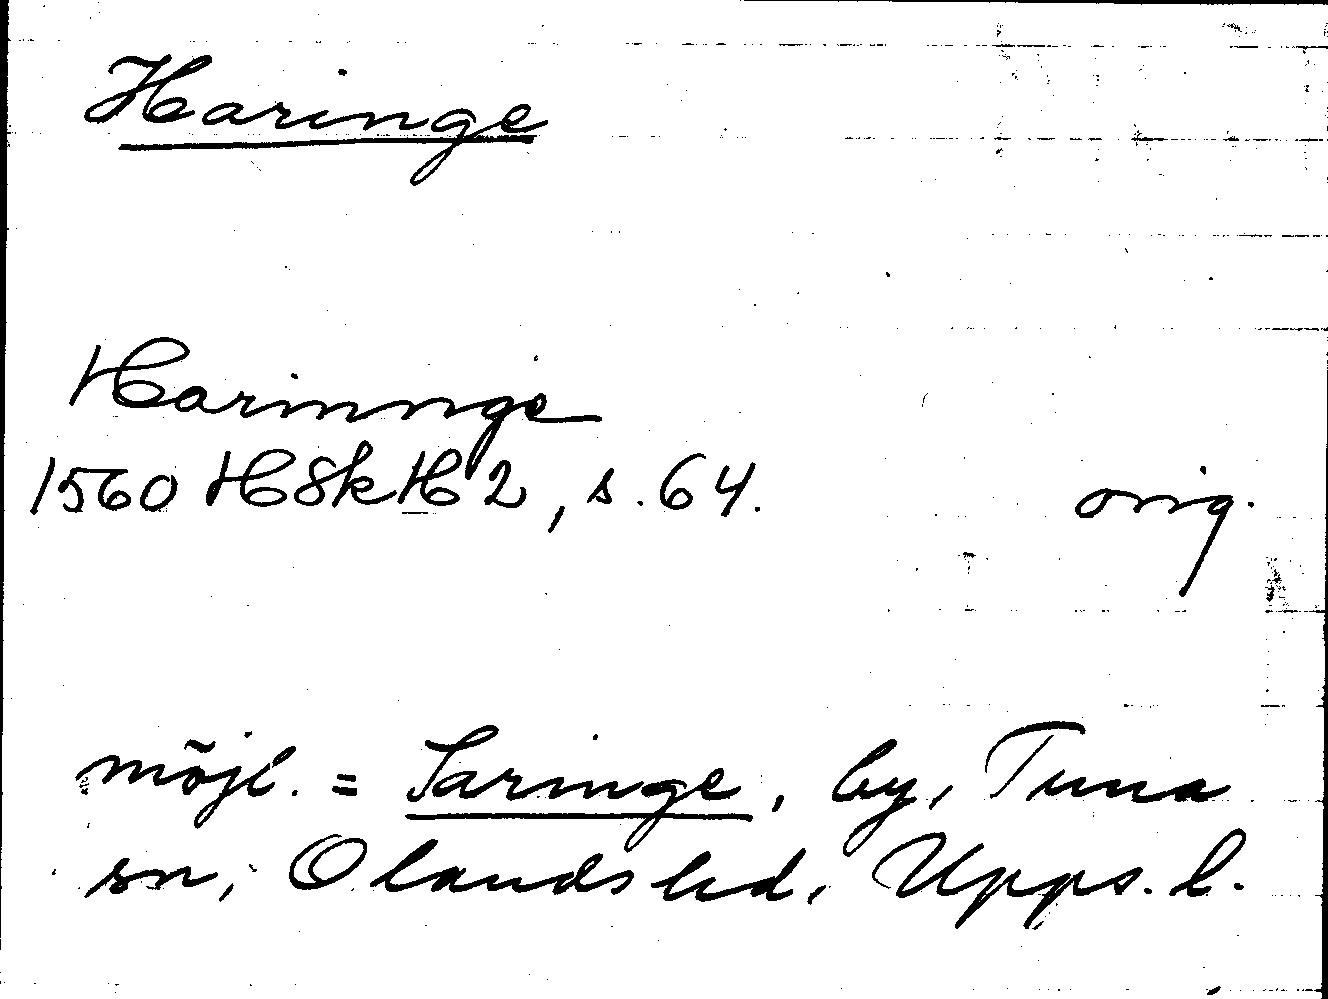 Haringe
Harinnge
1560 HSkH 2, s. 64. orig.
möjl. = Saringe, by, Tuna
sn, Olands hd, Upps. l.